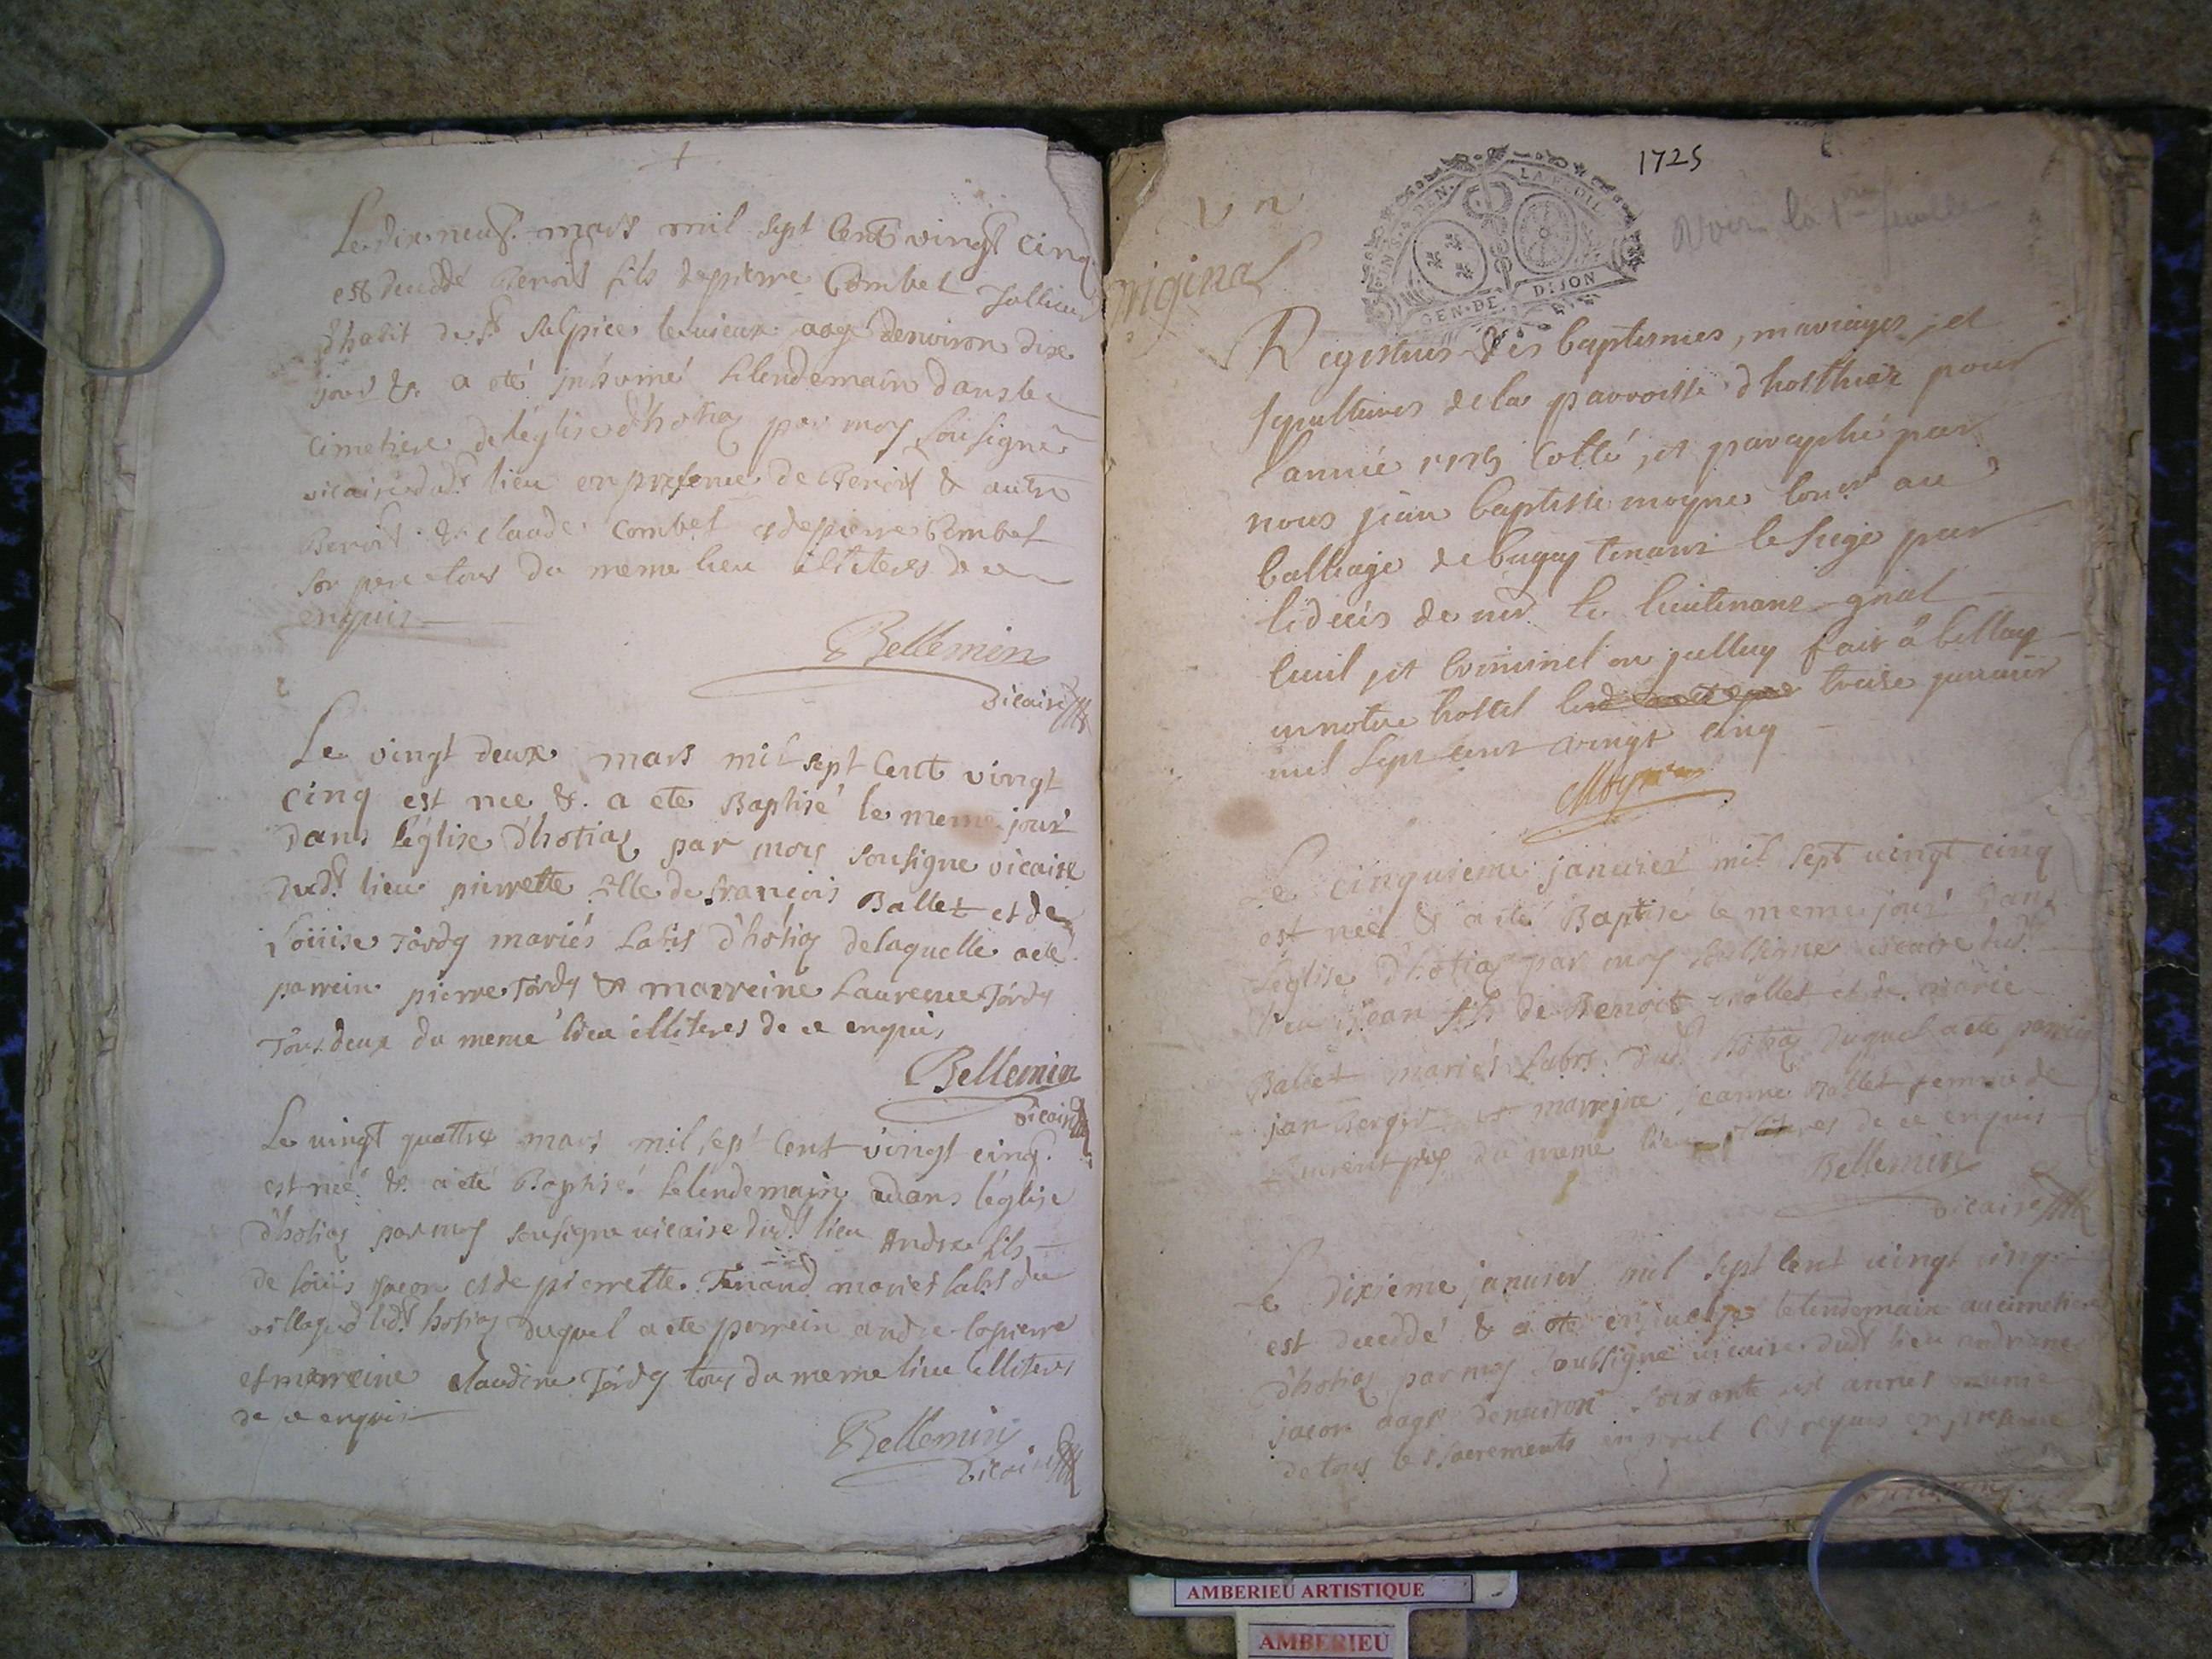 Le dix neuf mars mil sept Cent vingt cinq
est decedé Benoit fils de pierre Combet Jollieux
d'habit de st Sulpice le vieux aage denviron dix
jours &. a eté inhumé le lendemain dans le
cimetiere de léglise d'hotiaz par moy sousigné
vicaire dudt lieu en presence de Benoit & autre
Benoit & claude Combet & de pierre Combet
son pere tous du meme lieu illiteres de ce
enquis
Bellemin
vicaire
Le vingt deux mars mil sept Cent vingt
cinq est nee &. a eté Baptisé le meme jour
dans léglise d'hotiaz par moy sousigne vicaire
dudt lieu pierrette fille de françois Ballet et de
Loüise Tördy mariés Labts d'hotiaz de laquelle a eté
parrein pierre Tördy & marreine Laurence Tördy
Tous deux du meme lieu illiteres de ce enquis
Bellemin
vicaire
Le vingt quattre mars mil sept Cent vingt cinq
est né &. a eté Baptisé le lendemain dans léglise
d'hotiaz par moy sousigne vicaire dudt lieu Andre fils
de Loüis jacon et de pierrette Tenand mariés labts du
village dudt hotiaz duquel a ete parrein andre lapierre
et marreine claudine Tördy tous du meme lieu illiteres
de ce enquis
Bellemin
vicaire
1725
un
GEN.DE DIJON
Voir la 1re feuille
original
Registres des baptesmes, mariages, et
sepultures de la parroisse d'hosthiaz pour
l'année 1725 Cotté, et paraphé par
nous jean baptiste moyne Coner au
balliage de bugey tenant le siege par
le deces de mr le lieutenant gnal
Civil, et Criminel en jcelluy fait à belley
en notre hostel treise janvier
mil sept cent vingt cinq
Moyne
Le cinquieme janvier mil sept vingt cinq
est né & a eté Baptisé le meme jour dans
Léglise d'hotiaz par moy soussigné vicaire dudt
lieu jean fils de Benoit mollet et de marie
Ballet mariés Labts dudt hotiaz duquel a eté parrein
jan Berger & marreine jeanne mollet femme de
du meme lieu illiteres de ce enquis
Bellemin
vicaire
Le dixieme janvier mil sept Cent vingt cinq
est decedé & a eté le lendemain au cimetiere
d'hotiaz par moy soubsigné vicaire dudt lieu
jacon aagé denviron soixante années munie
de tous les sacrements en presence
AMBERIEU ARTISTIQUE
AMBERIEU